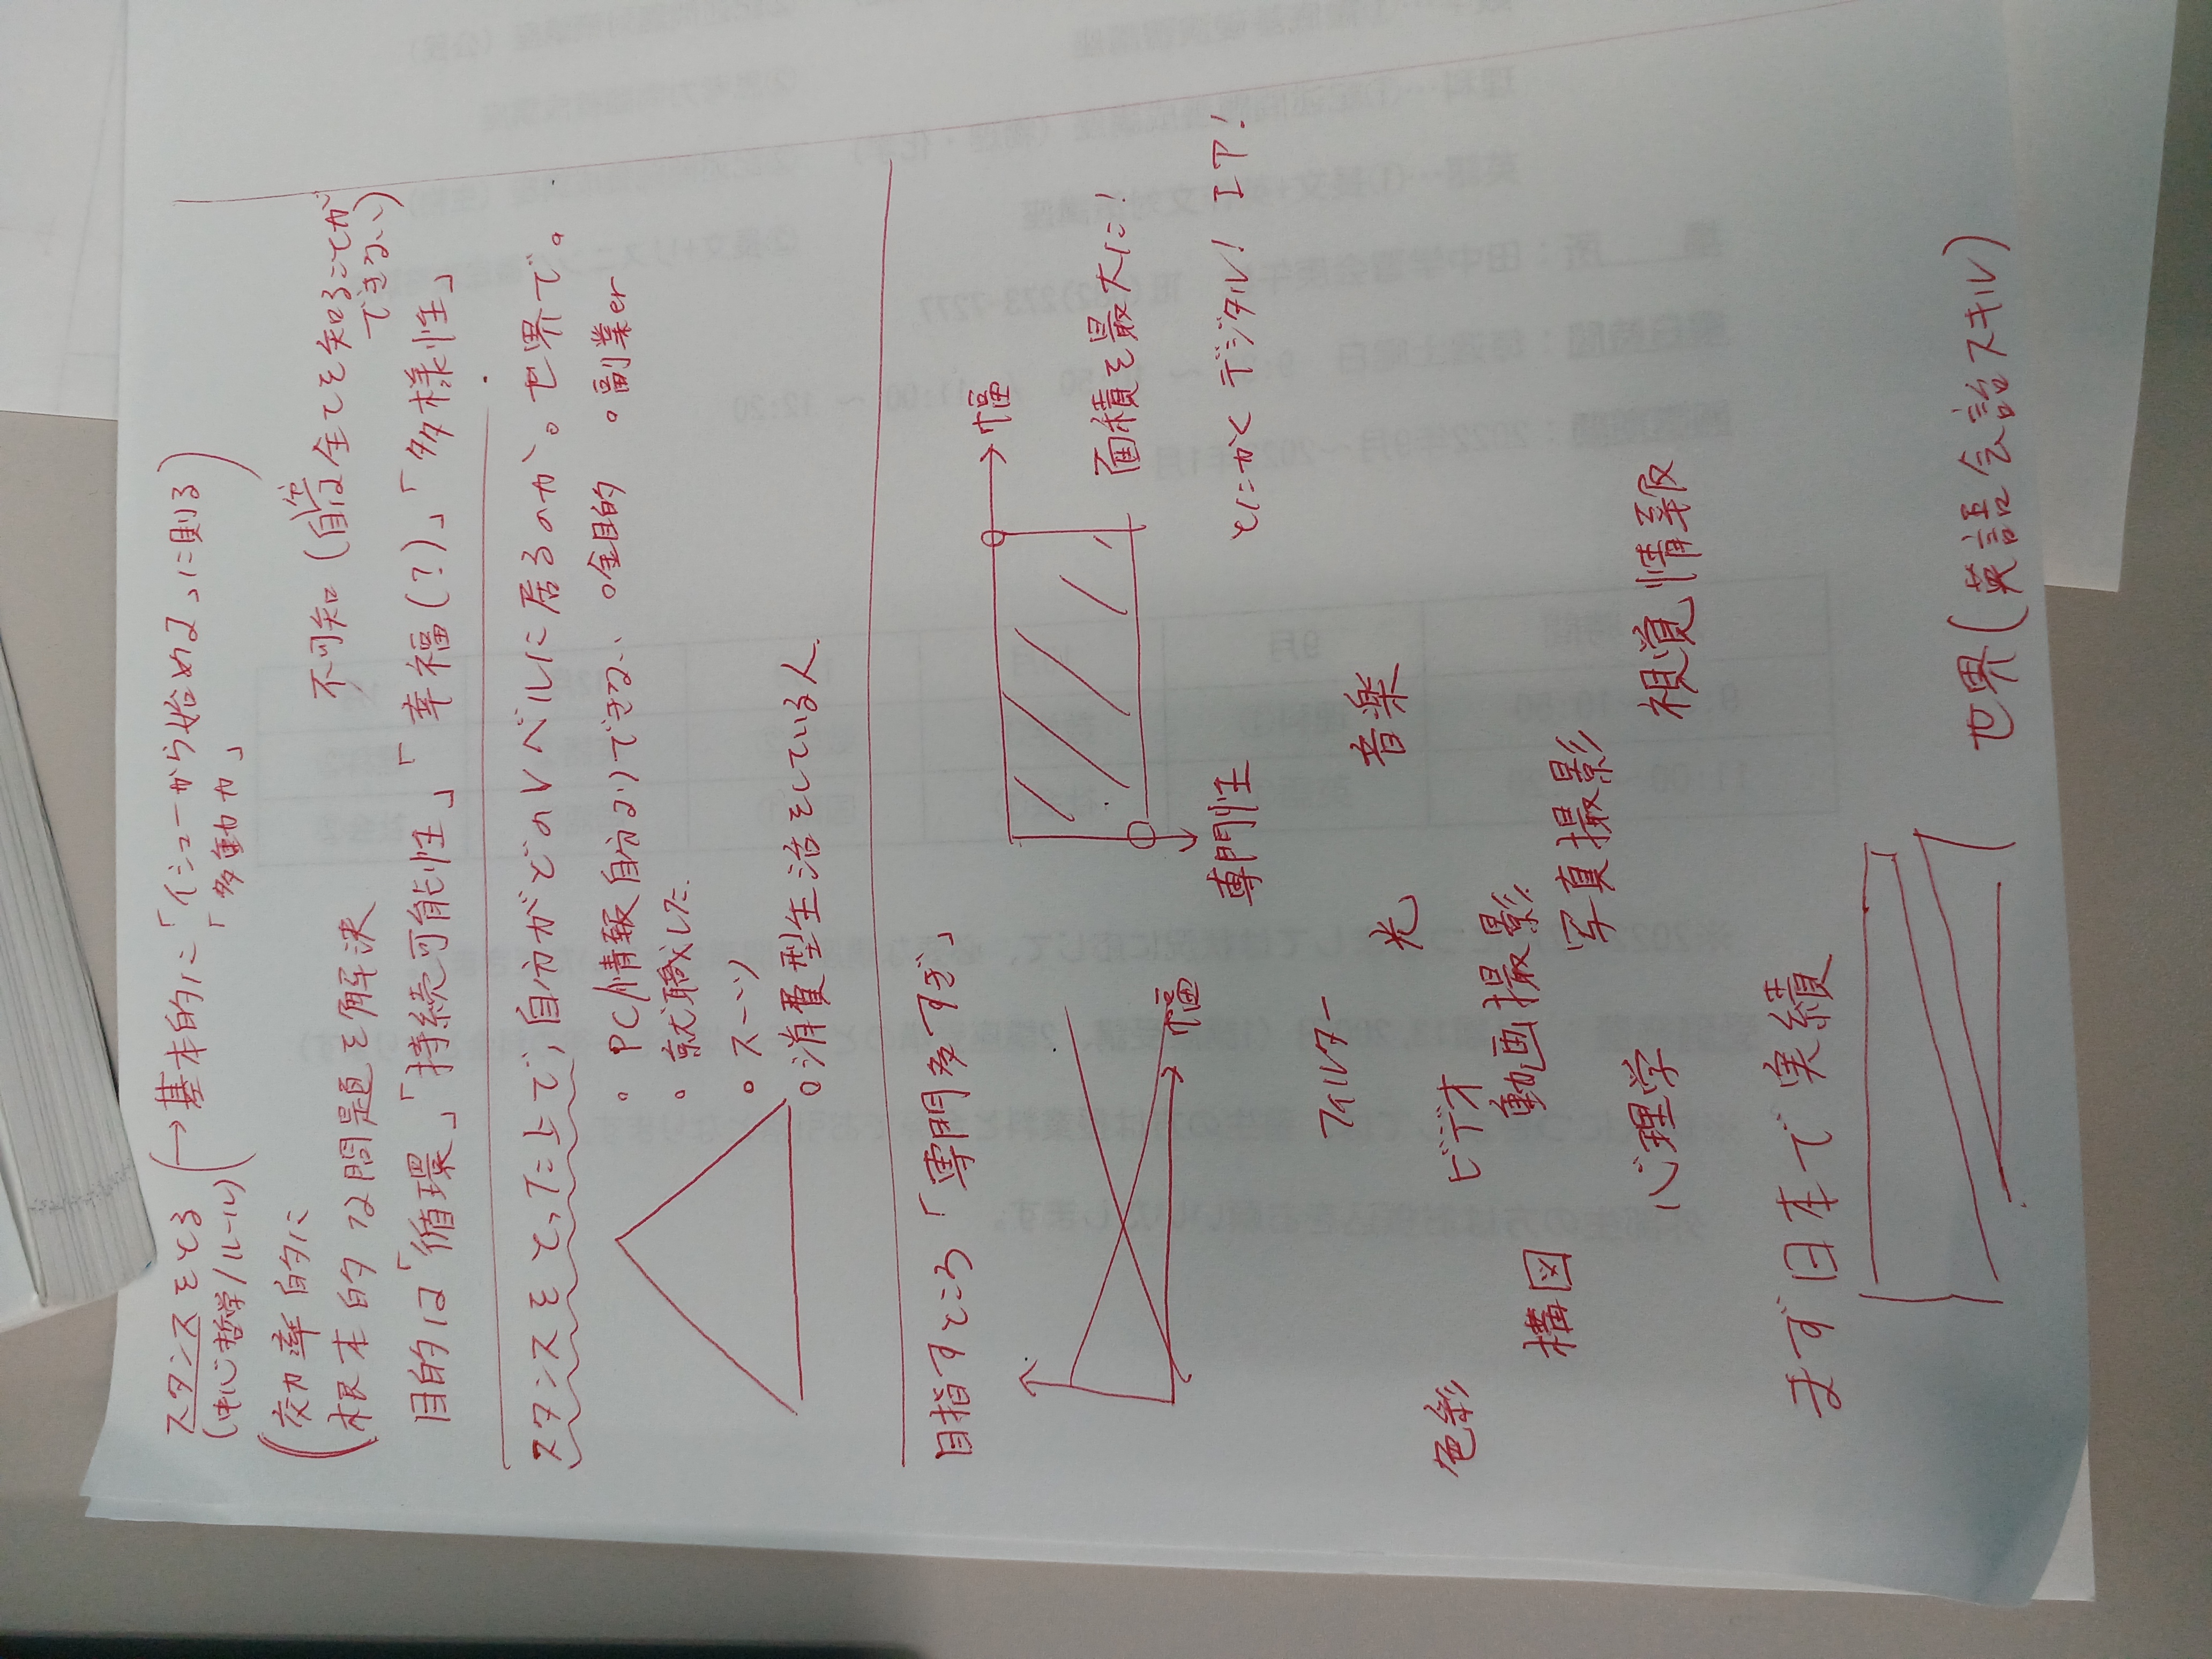 スタンスをとる (→基本的に「イシューから始めよ」に則る
(中心哲学/ルール) 「多動力」)
(効率的に
根本的な問題を解決
不可知(自分は全てを知ることが
できない)
目的は「循環」「持続可能性」「幸福(?)」「多様性」
スタンスをとった上で,自分がどのレベルに居るのか。世界で。
・PC/情報 自分よりできない 。金目的 。副業er
・就職した
。スーツ
。消費型生活をしている人.
目指すところ「専門多すぎ」
幅
幅
面積を最大に!
専門性
とにかくデジタル! エア!
フィルター
光
音楽
色彩
ビデオ
動画撮影
構図
写真撮影
心理学
視覚情報
まず日本で実績
世界(英語会話スキル)